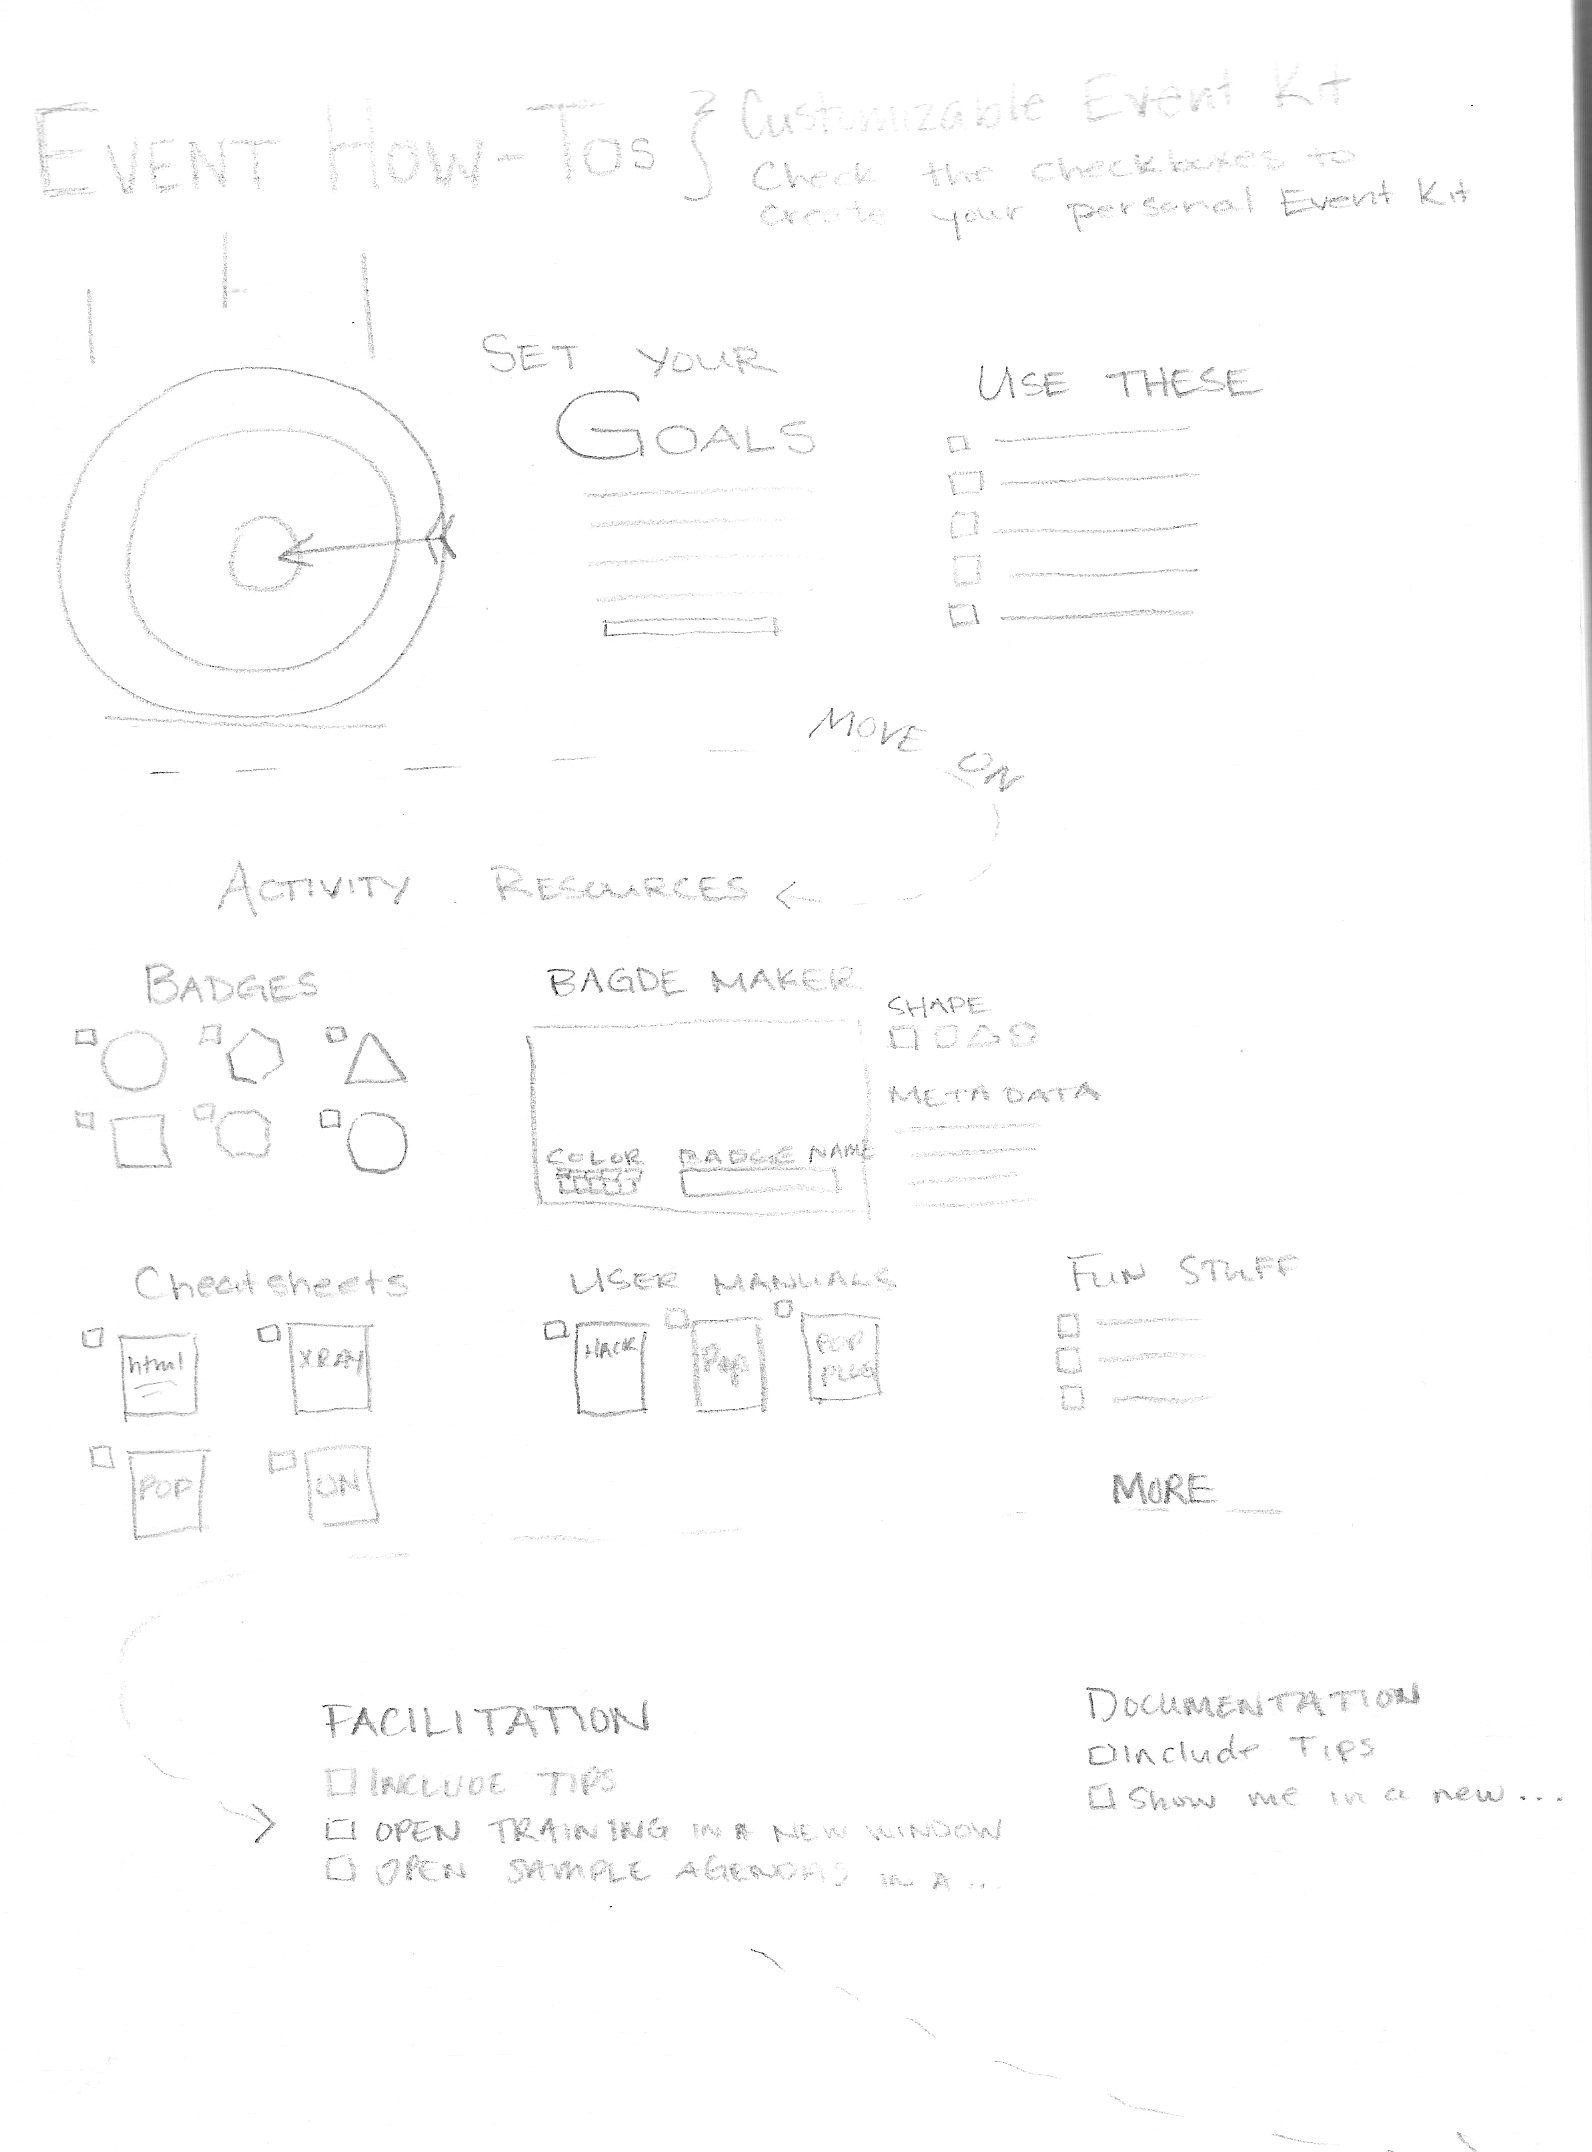 EVENT HOW-TOS } Custimizable Event Kit
Check the checkboxes to
create your personal Event Kit
SET YOUR
GOALS
USE THESE
MOVE ON
ACTIVITY RESOURCES
BADGES
BAGDE MAKER
SHAPE
META DATA
COLOR
BADGE NAME
Cheatsheets
html
XRAY
POP
ON
USER MANUALS
HACK
POP
POP
PLUG
FUN STUFF
MORE
FACILITATION
INCLUDE TIPS
OPEN TRAINING IN A NEW WINDOW
OPEN SAMPLE AGENDAS in A ...
DOCUMENTATION
Include Tips
Show me in a new ...